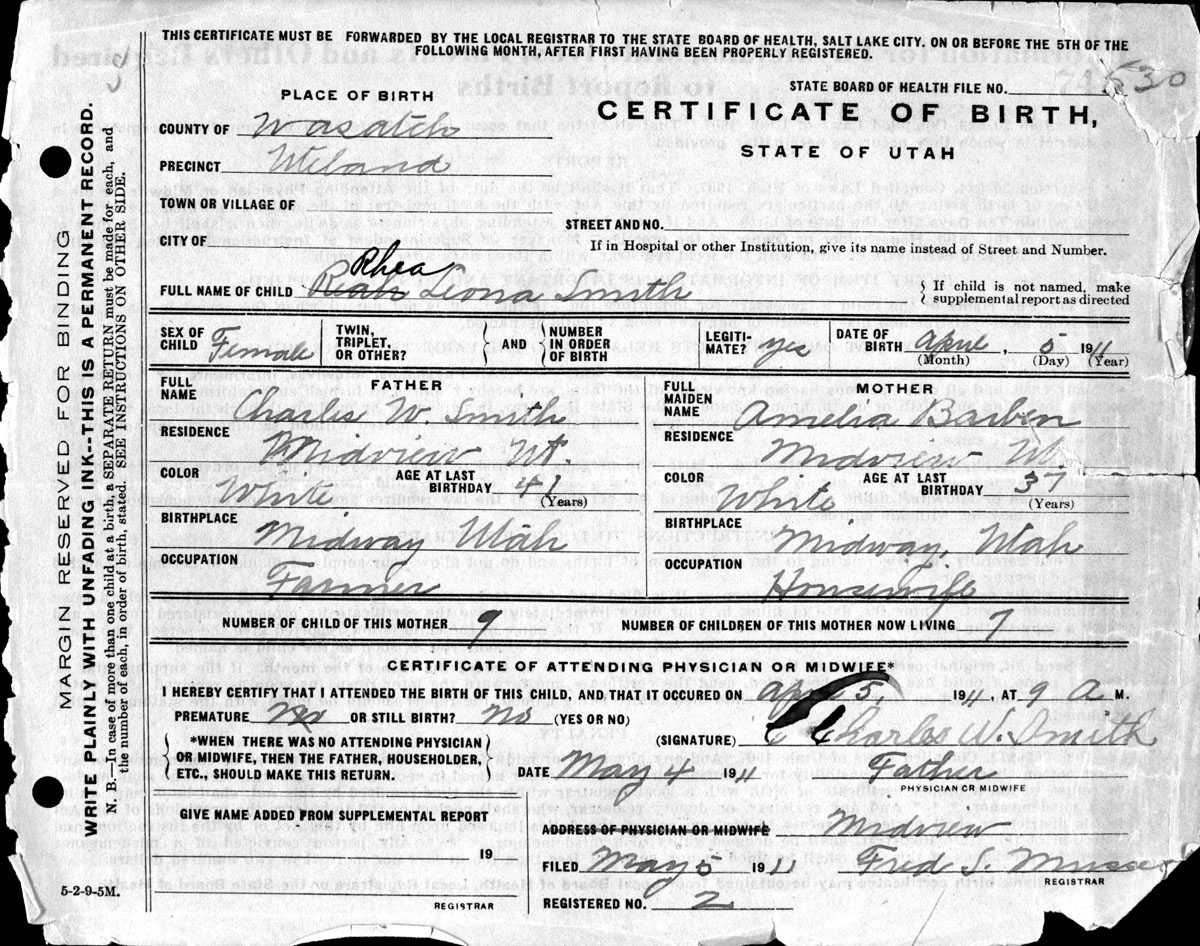 THIS CERTIFICATE MUST BE FORWARDED BY THE LOCAL REGISTRAR TO THE STATE BOARD OF HEALTH, SALT LAKE CITY, ON OR BEFORE THE 5TH OF THE
FOLLOWING MONTH, AFTER FIRST HAVING BEEN PROPERLY REGISTERED.
STATE BOARD OF HEALTH FILE NO. 530
PLACE OF BIRTH
CERTIFICATE OF BIRTH,
STATE OF UTAH
COUNTY OF Wasatch
PRECINCT
TOWN OR VILLAGE OF
STREET AND NO.
CITY OF
If in Hospital or other Institution, give its name instead of Street and Number.
Rhea
FULL NAME OF CHILD Leona Smith
{ If child is not named, make
supplemental report as directed
SEX OF CHILD Female
TWIN, TRIPLET, OR OTHER?
{ AND }
NUMBER IN ORDER OF BIRTH
LEGITI-MATE? yes
DATE OF BIRTH April, 5 1911
(Month) (Day) (Year)
FATHER
FULL NAME Charles W. Smith
RESIDENCE Midview Ut.
COLOR White
AGE AT LAST BIRTHDAY 41 (Years)
BIRTHPLACE Midway Utah
OCCUPATION Farmer
MOTHER
FULL MAIDEN NAME Amelia Barben
RESIDENCE Midview Ut.
COLOR White
AGE AT LAST BIRTHDAY 37 (Years)
BIRTHPLACE Midway, Utah
OCCUPATION Housewife
NUMBER OF CHILD OF THIS MOTHER 9
NUMBER OF CHILDREN OF THIS MOTHER NOW LIVING 7
CERTIFICATE OF ATTENDING PHYSICIAN OR MIDWIFE*
I HEREBY CERTIFY THAT I ATTENDED THE BIRTH OF THIS CHILD, AND THAT IT OCCURED ON April 5, 1911, AT 9 A M.
PREMATURE No OR STILL BIRTH? No (YES OR NO)
(SIGNATURE) Charles W. Smith
{ *WHEN THERE WAS NO ATTENDING PHYSICIAN
OR MIDWIFE, THEN THE FATHER, HOUSEHOLDER,
ETC., SHOULD MAKE THIS RETURN. }
DATE May 4 1911
Father
PHYSICIAN OR MIDWIFE
GIVE NAME ADDED FROM SUPPLEMENTAL REPORT
19
REGISTRAR
ADDRESS OF PHYSICIAN OR MIDWIFE Midview
FILED May 5 1911
Fred S. Musser
REGISTRAR
REGISTERED NO. 2
5-2-9-5M.
MARGIN RESERVED FOR BINDING
WRITE PLAINLY WITH UNFADING INK--THIS IS A PERMANENT RECORD.
N. B.--In case of more than one child at a birth, a SEPARATE RETURN must be made for each, and
the number of each, in order of birth, stated. SEE INSTRUCTIONS ON OTHER SIDE.